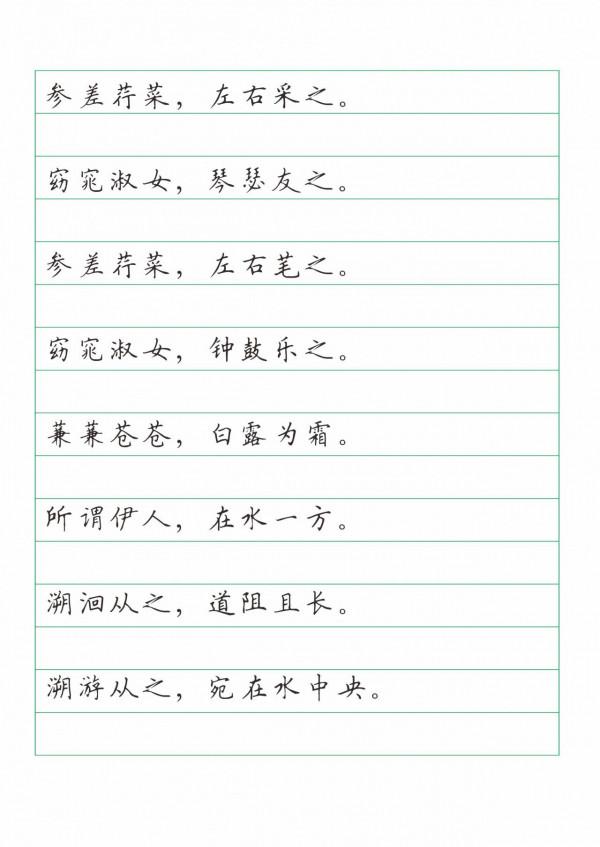 参差荇菜，左右采之。
窈窕淑女，琴瑟友之。
参差荇菜，左右笔之。
窈窕淑女，钟鼓乐之。
蒹蒹苍苍，白露为霜。
所谓伊人，在水一方。
溯洄从之，道阻且长。
溯游从之，宛在水中央。